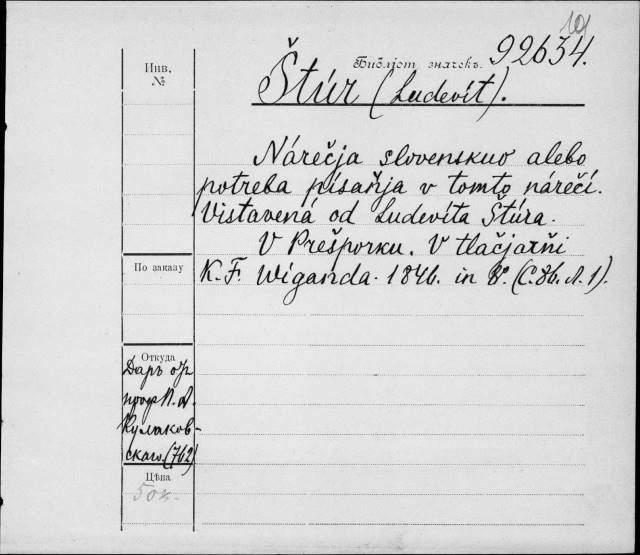 10
Библіот значекъ. 92634.
Štúr (Ludevít).
Nárečja slovenskuo alebo
potreba písaňja v tomto nárečí.
Vistavená od Ludevíta Štúra.
V Prešporku. V tlačjarňi
K. F. Wiganda. 1846. in 8°. (C. 86. Л. 1).
Инв.
№
По заказу
Откуда
Даръ отъ
проф. П. А.
Кулаков-
скаго (762)
Цѣна
50 к.